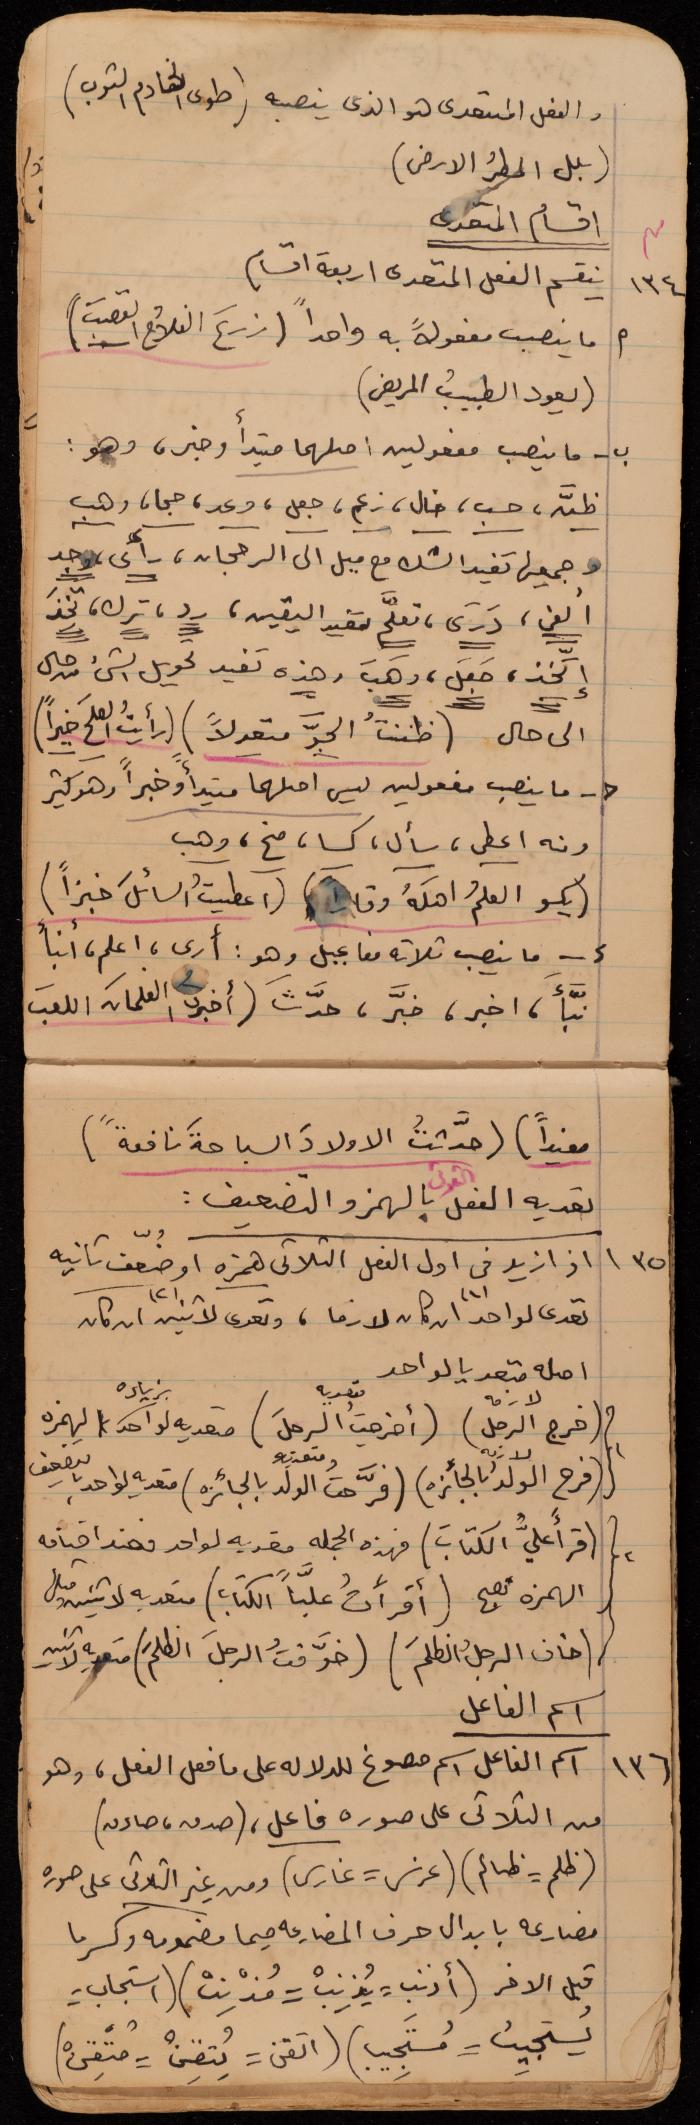 والفعل المتعدى هو الذى ينصبه (طوى الخادم الثوب)
(بلل المطرُ الارض)
اقسام المتعدى
١٣٤ ينقسم الفعل المتعدى اربعة اقسام
ا ما ينصب مفعولاً به واحداً (زرعَ الفلاحُ القصبَ)
(يعود الطبيبُ المريض)
ب- ما ينصب مفعولين اصلهما مبتدأ وخبر، وهو :
ظنَّ، حسب، خال، زعم، جعل، وعد، حجا، وهب
وجميعها تفيد الشك مع ميل الى الرجحان، رأى، وجد
ألفى، دَرَى، تعلَّم تفيد اليقين، رد، ترك، تَخِذَ
إتَّخذ، جَعَل، وَهَبَ وهذه تفيد تحويل الشئ من حال
الى حال (ظننتُ الجوَّ معتدلاً) (رأيتُ الصلحَ خيراً)
حـ- ما ينصب مفعولين ليس اصلهما مبتدأً وخبراً وهو كثير
ومنه اعطى، سأل، كسا، منح، وهب
(يكسو العلمُ اهلَهُ وقاراً) (اعطيتُ السائلَ خبزاً)
ء- ما ينصب ثلاثه مفاعيل وهو : أرى، اعلم، أنبأ
نبَّأَ، اخبر، خبَّر، حدَّثَ (أخبرتُ الغلمانَ اللعبَ
مفيداً) (حدَّثتُ الاولادَ السباحةَ نافعةً)
تعديه الفعل الثلاثى بالهمز والتضعيف :
١٣٥ اذا زيد فى اول الفعل الثلاثى همزه او ضُعّف ثانيه
تعدى لواحد (١) ان كان لازما، وتعدى لاثنين (٢) ان كان
اصله متعديا لواحد
(خرج الرجلُ) لازمه (أخرجتُ الرجلَ) متعديه متعديه لواحد بزياده الهمزه
١ (فرح الولدُ بالجائزه) لازمه (فرَّحتُ الولد بالجائزه) متعديه متعديه لواحد بالتضعيف
٢ (قرأ عليٌّ الكتابَ) فهذه الجمله متعديه لواحد وعند اضافه
الهمزه تصبح (أقرأتُ عليَّاً الكتاب) متعديه لاثنين ومثال
(خاف الرجلُ الظلمَ) (خوَّفتُ الرجلَ الظلمَ) متعديه لاثنين
اسم الفاعل
١٣٦ اسم الفاعل اسم مصوغ للدلاله على ما فعل الفعل، وهو
من الثلاثى على صوره فاعل، (صدق، صادق)
(ظلم = ظالم) (غرس = غارس) ومن غير الثلاثى على صوره
مضارعه بابدال حرف المضارعه ميما مضمومه وكسر ما
قبل الاخر (أذنب = يُذْنِبْ = مُذْنِبْ) (استجاب =
يُستجيبُ = مُستَجِيب) (اتقن = يُتقِنْ = مُتْقِنْ)